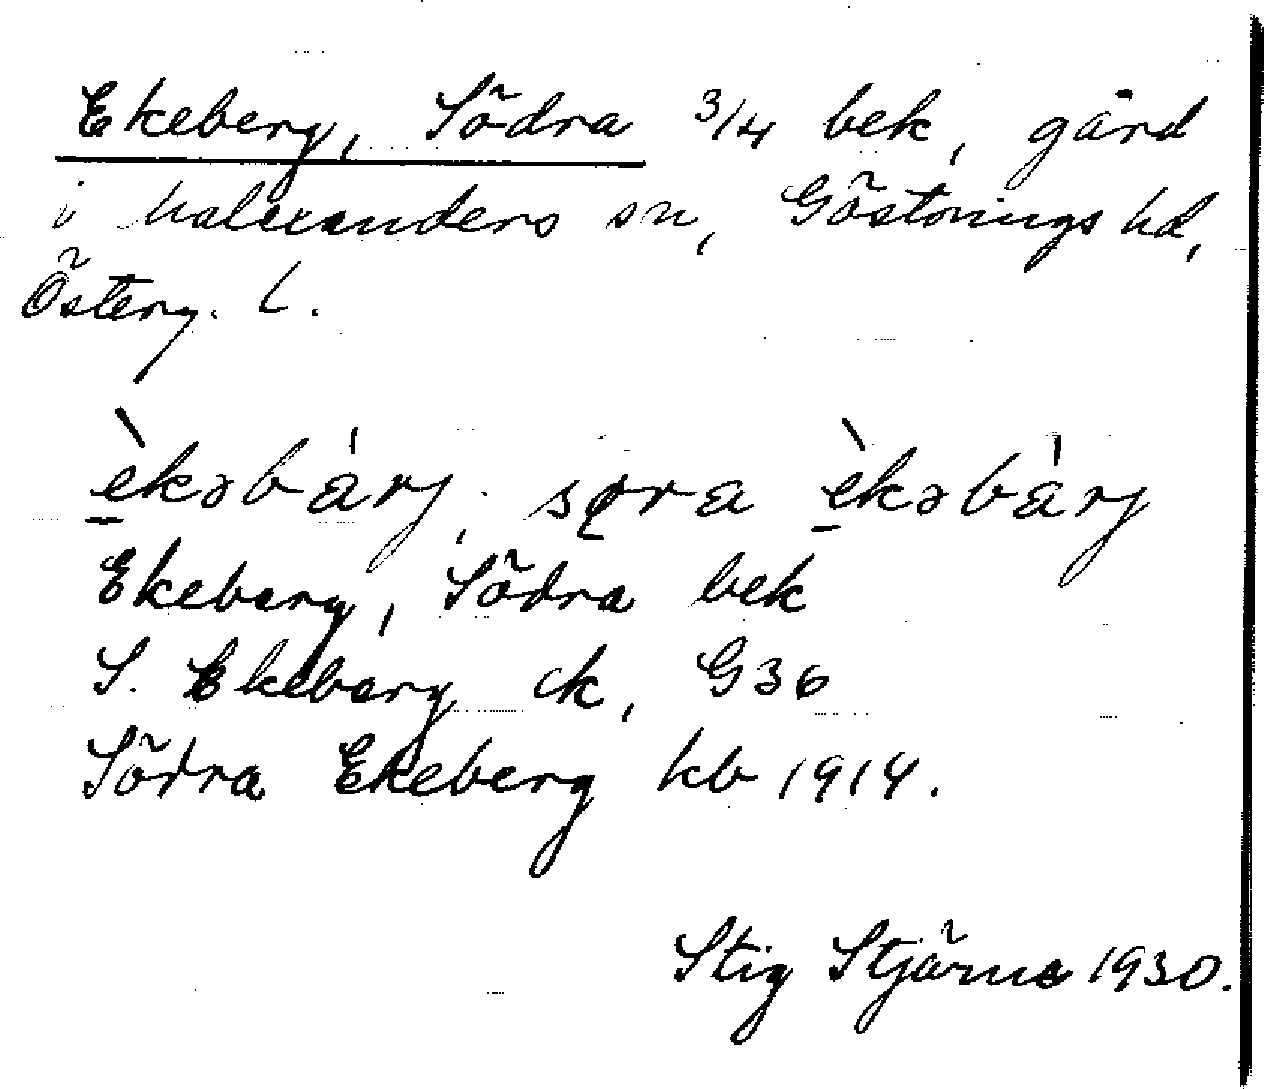 Ekeberg, Södra 3/4 bek, gård
i Malexanders sn, Göstrings hd,
Österg. L.
èkəbàrj, sɷra èkəbàrj
Ekeberg, Södra bek
S. Ekeberg ck, G36
Södra Ekeberg kb 1914.
Stig Stjärne 1930.